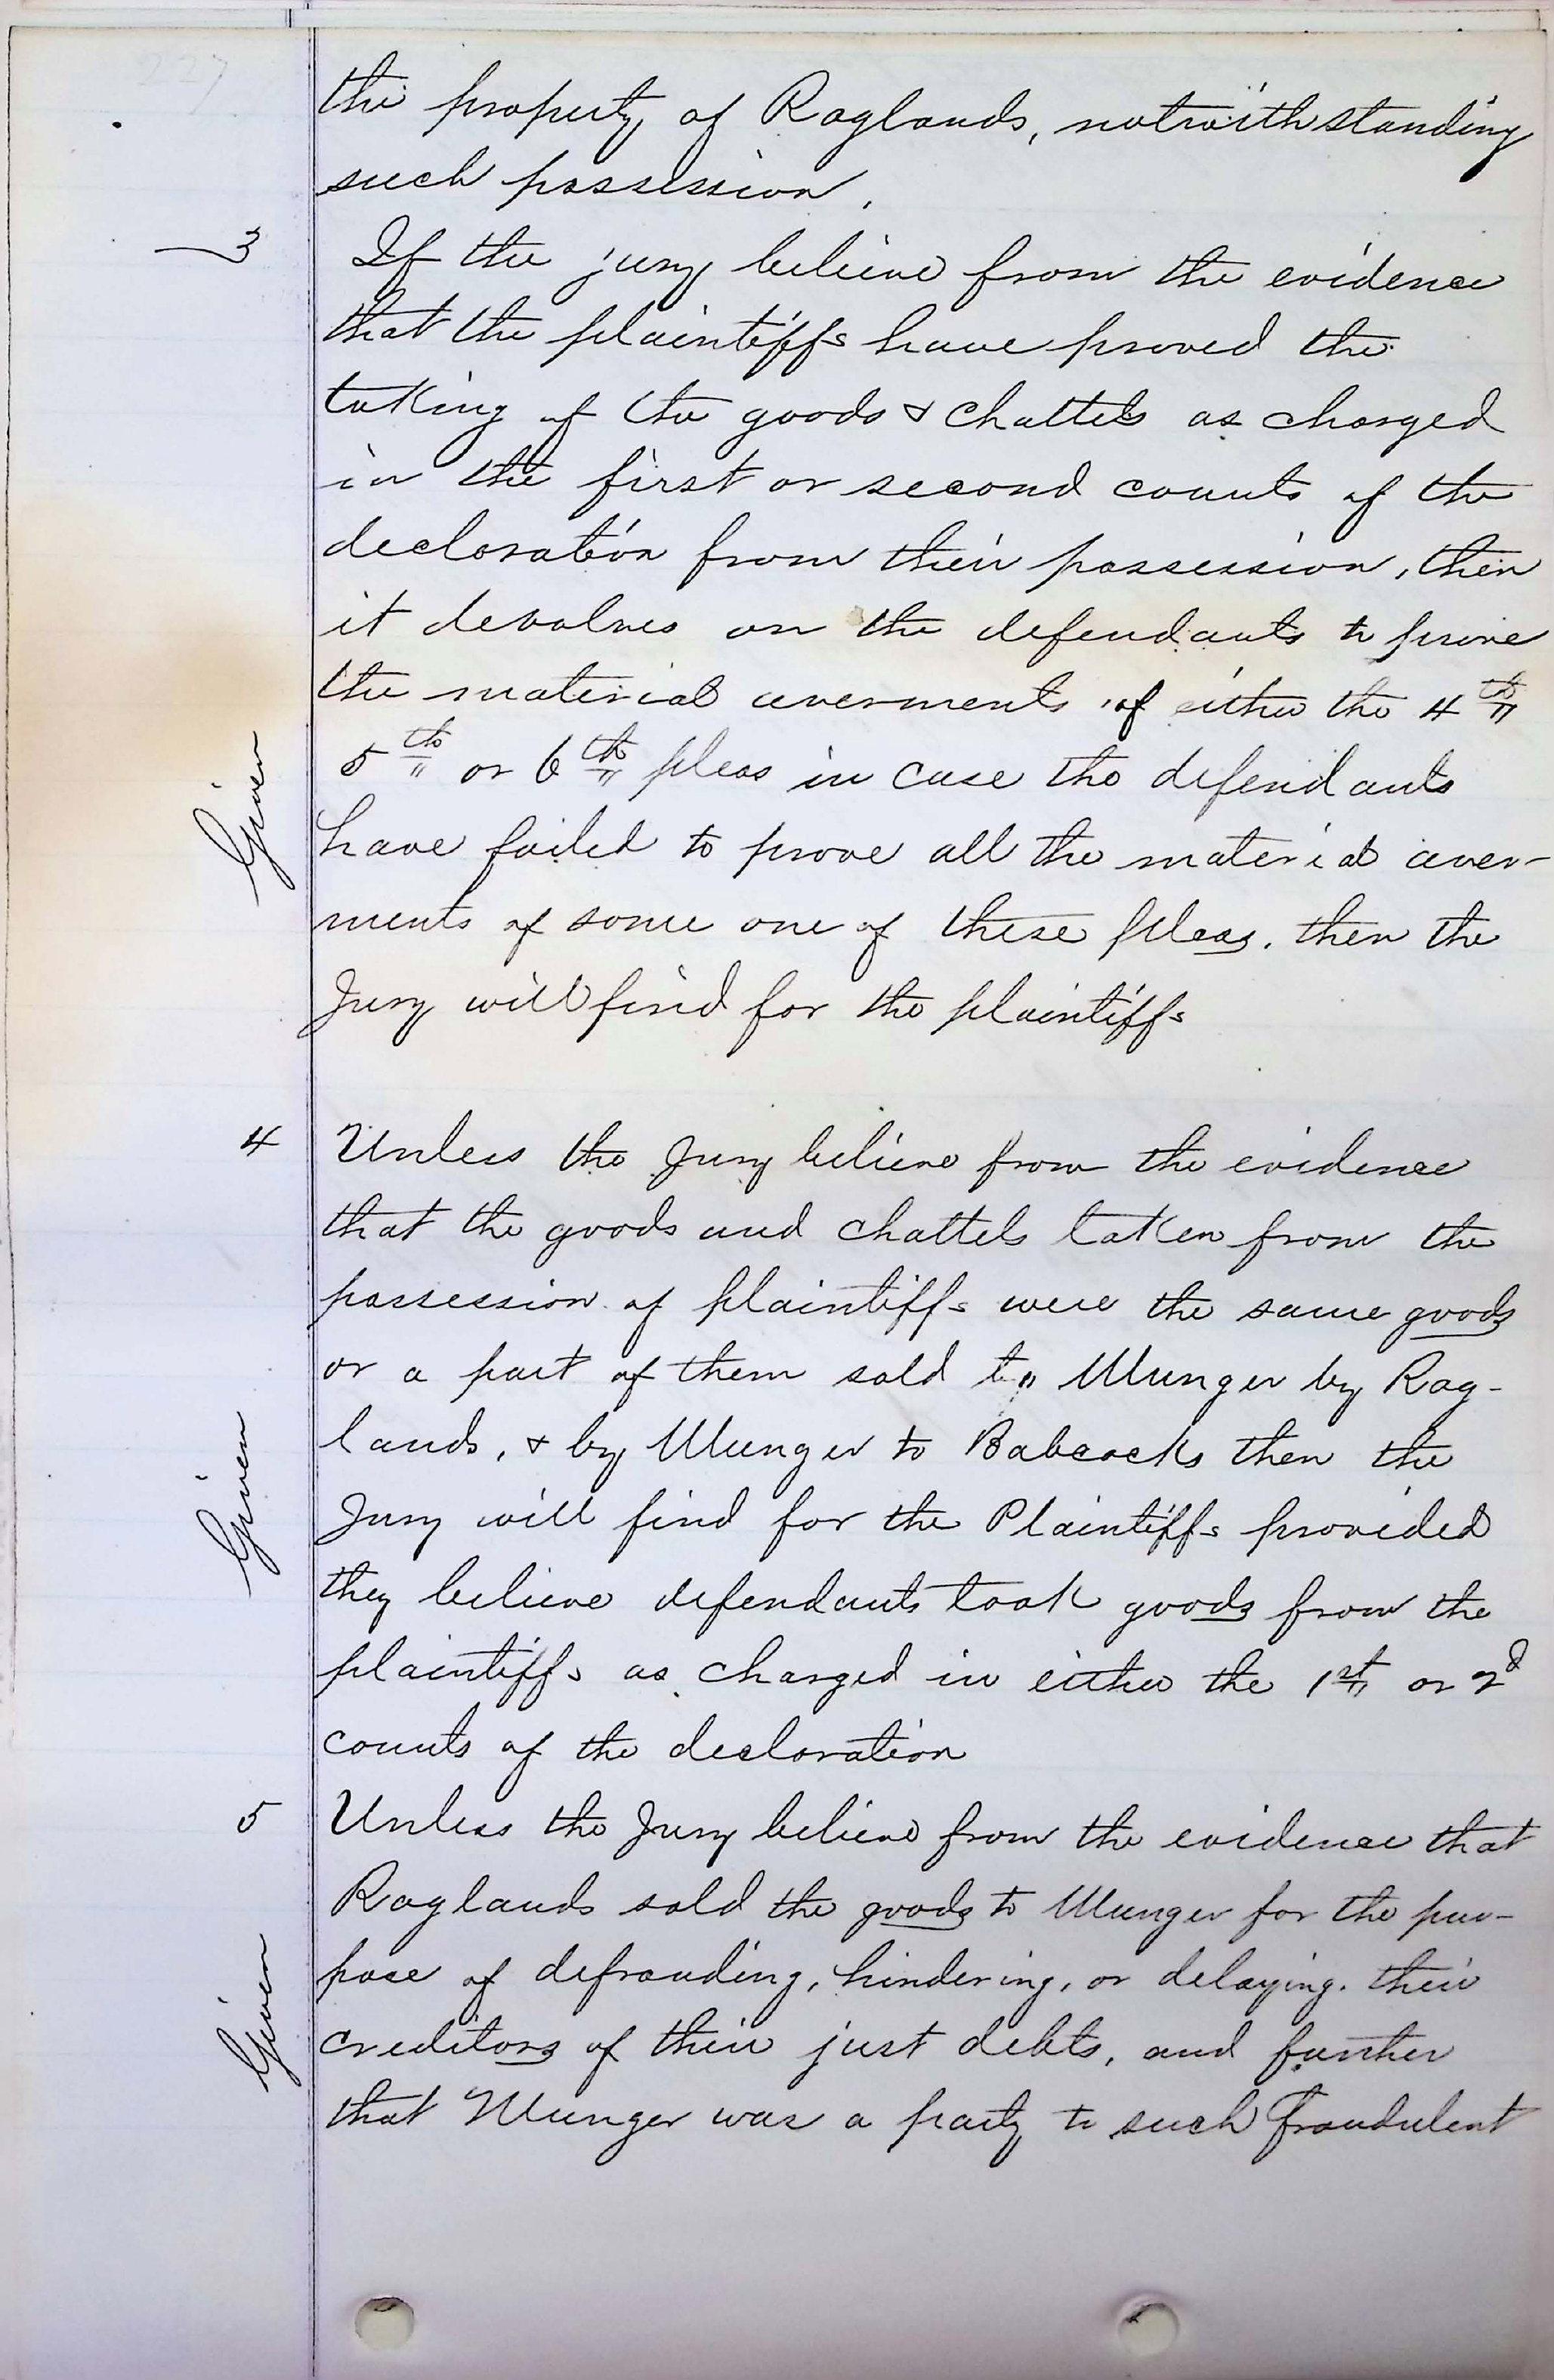 227
the property of Raglands, notwithstanding
such possession.
3 If the jury believe from the evidence
that the plaintiffs have proved the
taking of the goods & chattels as charged
in the first or second counts of the
declaration from their possession, then
it devolves on the defendants to prove
the material averments of either the 4th
5th or 6th pleas in case the defendants
Given
have failed to prove all the material aver-
ments of some one of these pleas. then the
Jury will find for the plaintiffs
4 Unless the Jury believe from the evidence
that the goods and chattels taken from the
possession of plaintiffs were the same goods
or a part of them sold to Munger by Rag-
lands, & by Munger to Babcocks then the
Given
Jury will find for the Plaintiffs provided
they believe defendants took goods from the
plaintiffs as charged in either the 1st or 2d
counts of the declaration
5 Unless the Jury believe from the evidence that
Raglands sold the goods to Munger for the pur-
pose of defrauding, hindering, or delaying. their
Given
creditors of their just debts, and further
that Munger was a party to such fraudulent